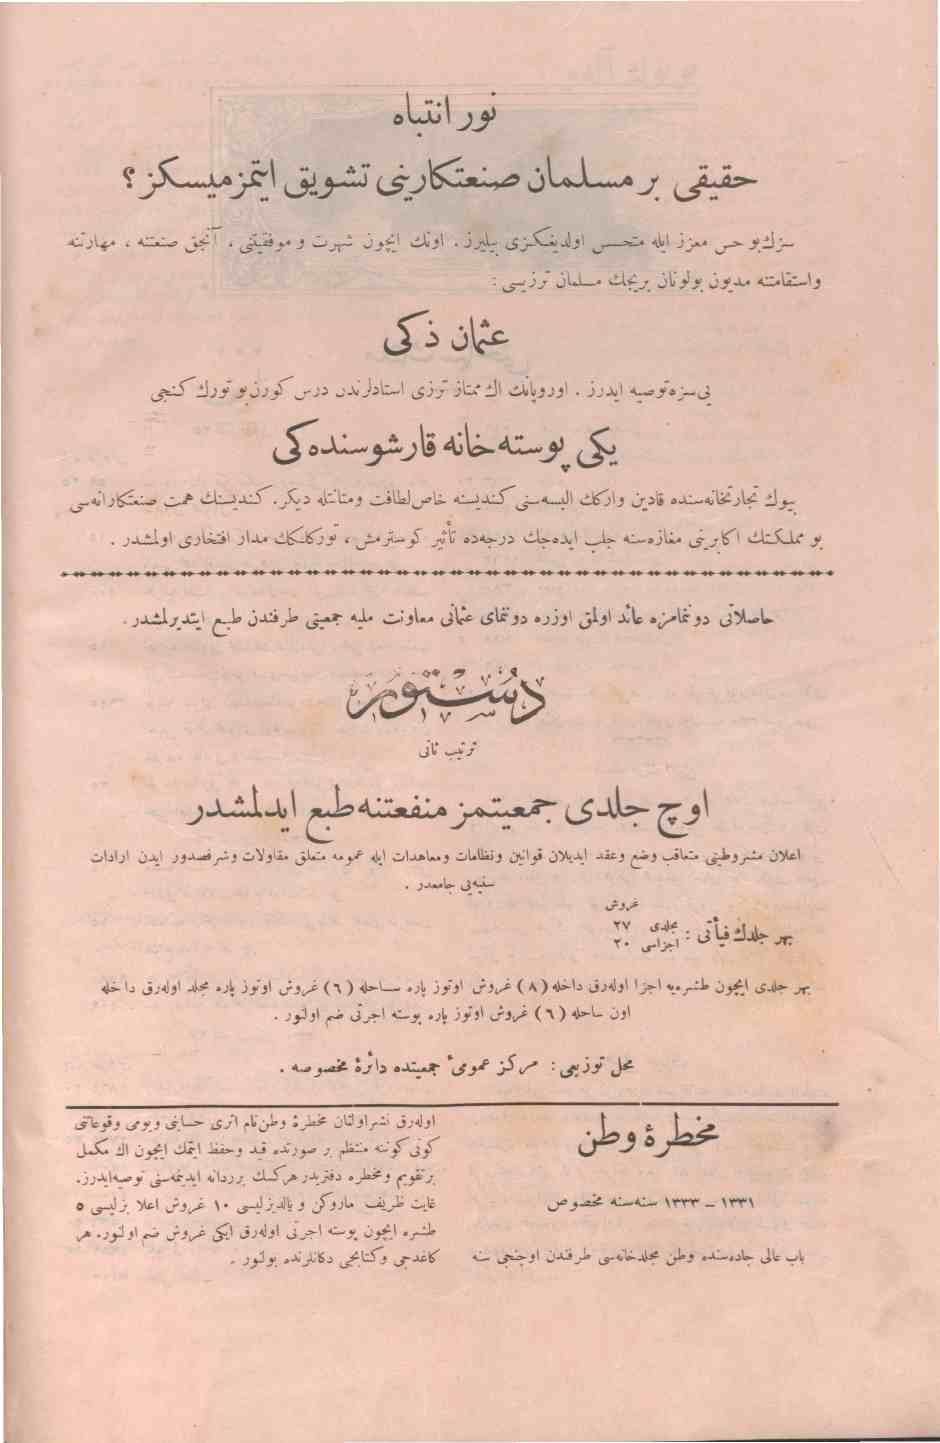 نور انتباه
حقیقی بر مسلمان صنعتکارینی تشویق ایتمزمیسکز ؟
سزك بو حس معزز ایله متحسس اولدیغکزی بیلیرز . اونك ایچون شهرت و موفقیتنی ، آنجق صنعتنه ، مهارتنه
واستقامتنه مدیون بولونان بریجك مسلمان ترزیسی :
عثمان ذکی
یی سزه توصیه ایدرز . اوروپانك اك ممتاز ترزی استادلرندن درس کورن بو تورك کنجی
یکی پوسته خانه قارشوسنده کی
بیوك تجارتخانه سنده قادین وارکك البسه سنی کندیسنه خاص لطافت ومتانتله دیکر . کندیسنك همت صنعتکارانه سی
بو مملکتك اکابرینی مغازه سنه جلب ایده جك درجه ده تأثیر کوسترمش ، تورکلکك مدار افتخاری اولمشدر .
حاصلاتی دونمامزه عائد اولمق اوزره دونمای عثمانی معاونت ملیه جمعیتی طرفندن طبع ایتدیرلمشدر .
دستور
ترتیب ثانی
اوچ جلدی جمعیتمز منفعتنه طبع ایدلمشدر
اعلان مشروطیتی متعاقب وضع وعقد ایدیلان قوانین ونظامات ومعاهدات ایله عمومه متعلق مقاولات وشرفصدور ایدن ارادات
سنیه یی جامعدر .
غروش
بهر جلدك فیأتی : مجلدی ٢٧
اجزاسی ٢٠
بهر جلدی ایچون طشره یه اجزا اوله رق داخله (٨) غروش اوتوز پاره ساحله (٦) غروش اوتوز پاره مجلد اوله رق داخله
اون ساحله (٦) غروش اوتوز پاره پوسته اجرتی ضم اولنور .
محل توزیعی : مرکز عمومئ جمعیتده دائرۀ مخصوصه .
مخطرۀ وطن
١٣٣١ – ١٣٣٣ سنه سنه مخصوص
باب عالی جاده سنده وطن مجلدخانه سی طرفندن اوچنجی سنه
اوله رق نشر اولنان مخطرۀ وطن نام اثری حسابنی ویومی وقوعاتی
کونی کوننه منتظم بر صورتده قید وحفظ ایتمك ایچون اك مکمل
برتقویم ومخطره دفتریدر هرکسك برر دانه ایدینمه سنی توصیه ایدرز .
غایت ظریف ماروکن و یالدیزلیسی ١٠ غروش اعلا بزلیسی ٥
طشره ایچون پوسته اجرتی اوله رق ایکی غروش ضم اولنور . هر
کاغدجی وکتابجی دکانلرنده بولنور .